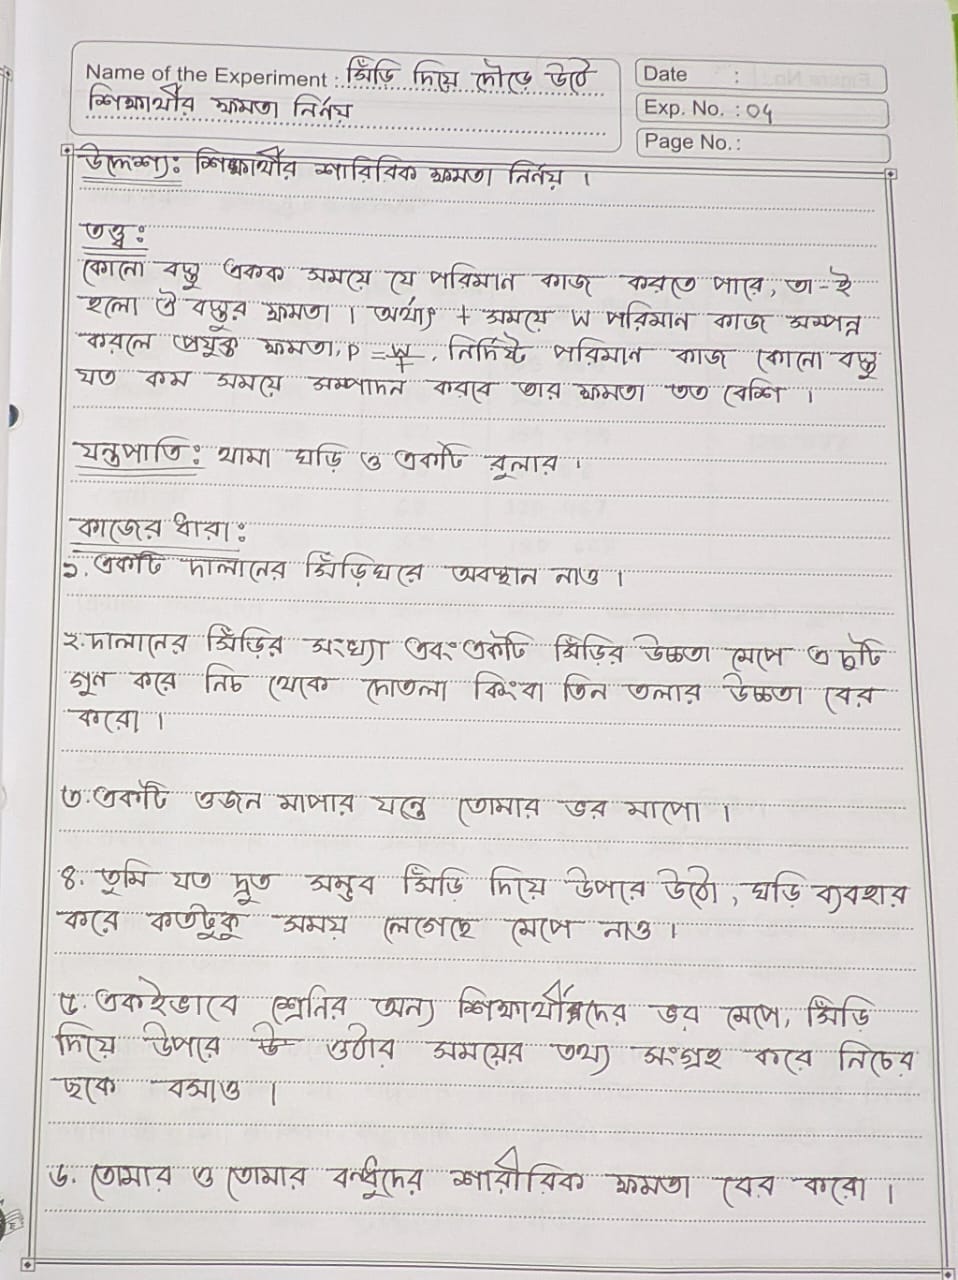 Name of the Experiment : সিঁড়ি দিয়ে দৌড়ে উঠে
শিক্ষার্থীর ক্ষমতা নির্নয়
Date :
Exp. No. : 04
Page No. :
উদ্দেশ্য: শিক্ষার্থীর শারিরিক ক্ষমতা নির্নয় ।
তত্ত্ব:
কোনো বস্তু একক সময়ে যে পরিমান কাজ করতে পারে, তা-ই
হলো ঐ বস্তুর ক্ষমতা । অর্থাৎ t সময়ে W পরিমান কাজ সম্পন্ন
করলে প্রযুক্ত ক্ষমতা, P = W/t , নির্দিষ্ট পরিমান কাজ কোনো বস্তু
যত কম সময়ে সম্পাদন করবে তার ক্ষমতা তত বেশি ।
যন্ত্রপাতি: থামা ঘড়ি ও একটি রুলার ।
কাজের ধারা:
১. একটি দালানের সিঁড়িঘরে অবস্থান নাও ।
২. দালানের সিঁড়ির সংখ্যা এবং একটি সিঁড়ির উচ্চতা মেপে এ দুটি
গুন করে নিচ থেকে দোতলা কিংবা তিন তলার উচ্চতা বের
করো ।
৩. একটি ওজন মাপার যন্ত্রে তোমার ভর মাপো ।
৪. তুমি যত দ্রুত সম্ভব সিঁড়ি দিয়ে উপরে উঠো, ঘড়ি ব্যবহার
করে কতটুকু সময় লেগেছে মেপে নাও ।
৫. একইভাবে শ্রেনির অন্য শিক্ষার্থীদের ভর মেপে, সিঁড়ি
দিয়ে উপরে ওঠার সময়ের তথ্য সংগ্রহ করে নিচের
ছকে বসাও ।
৬. তোমার ও তোমার বন্ধুদের শারীরিক ক্ষমতা বের করো ।